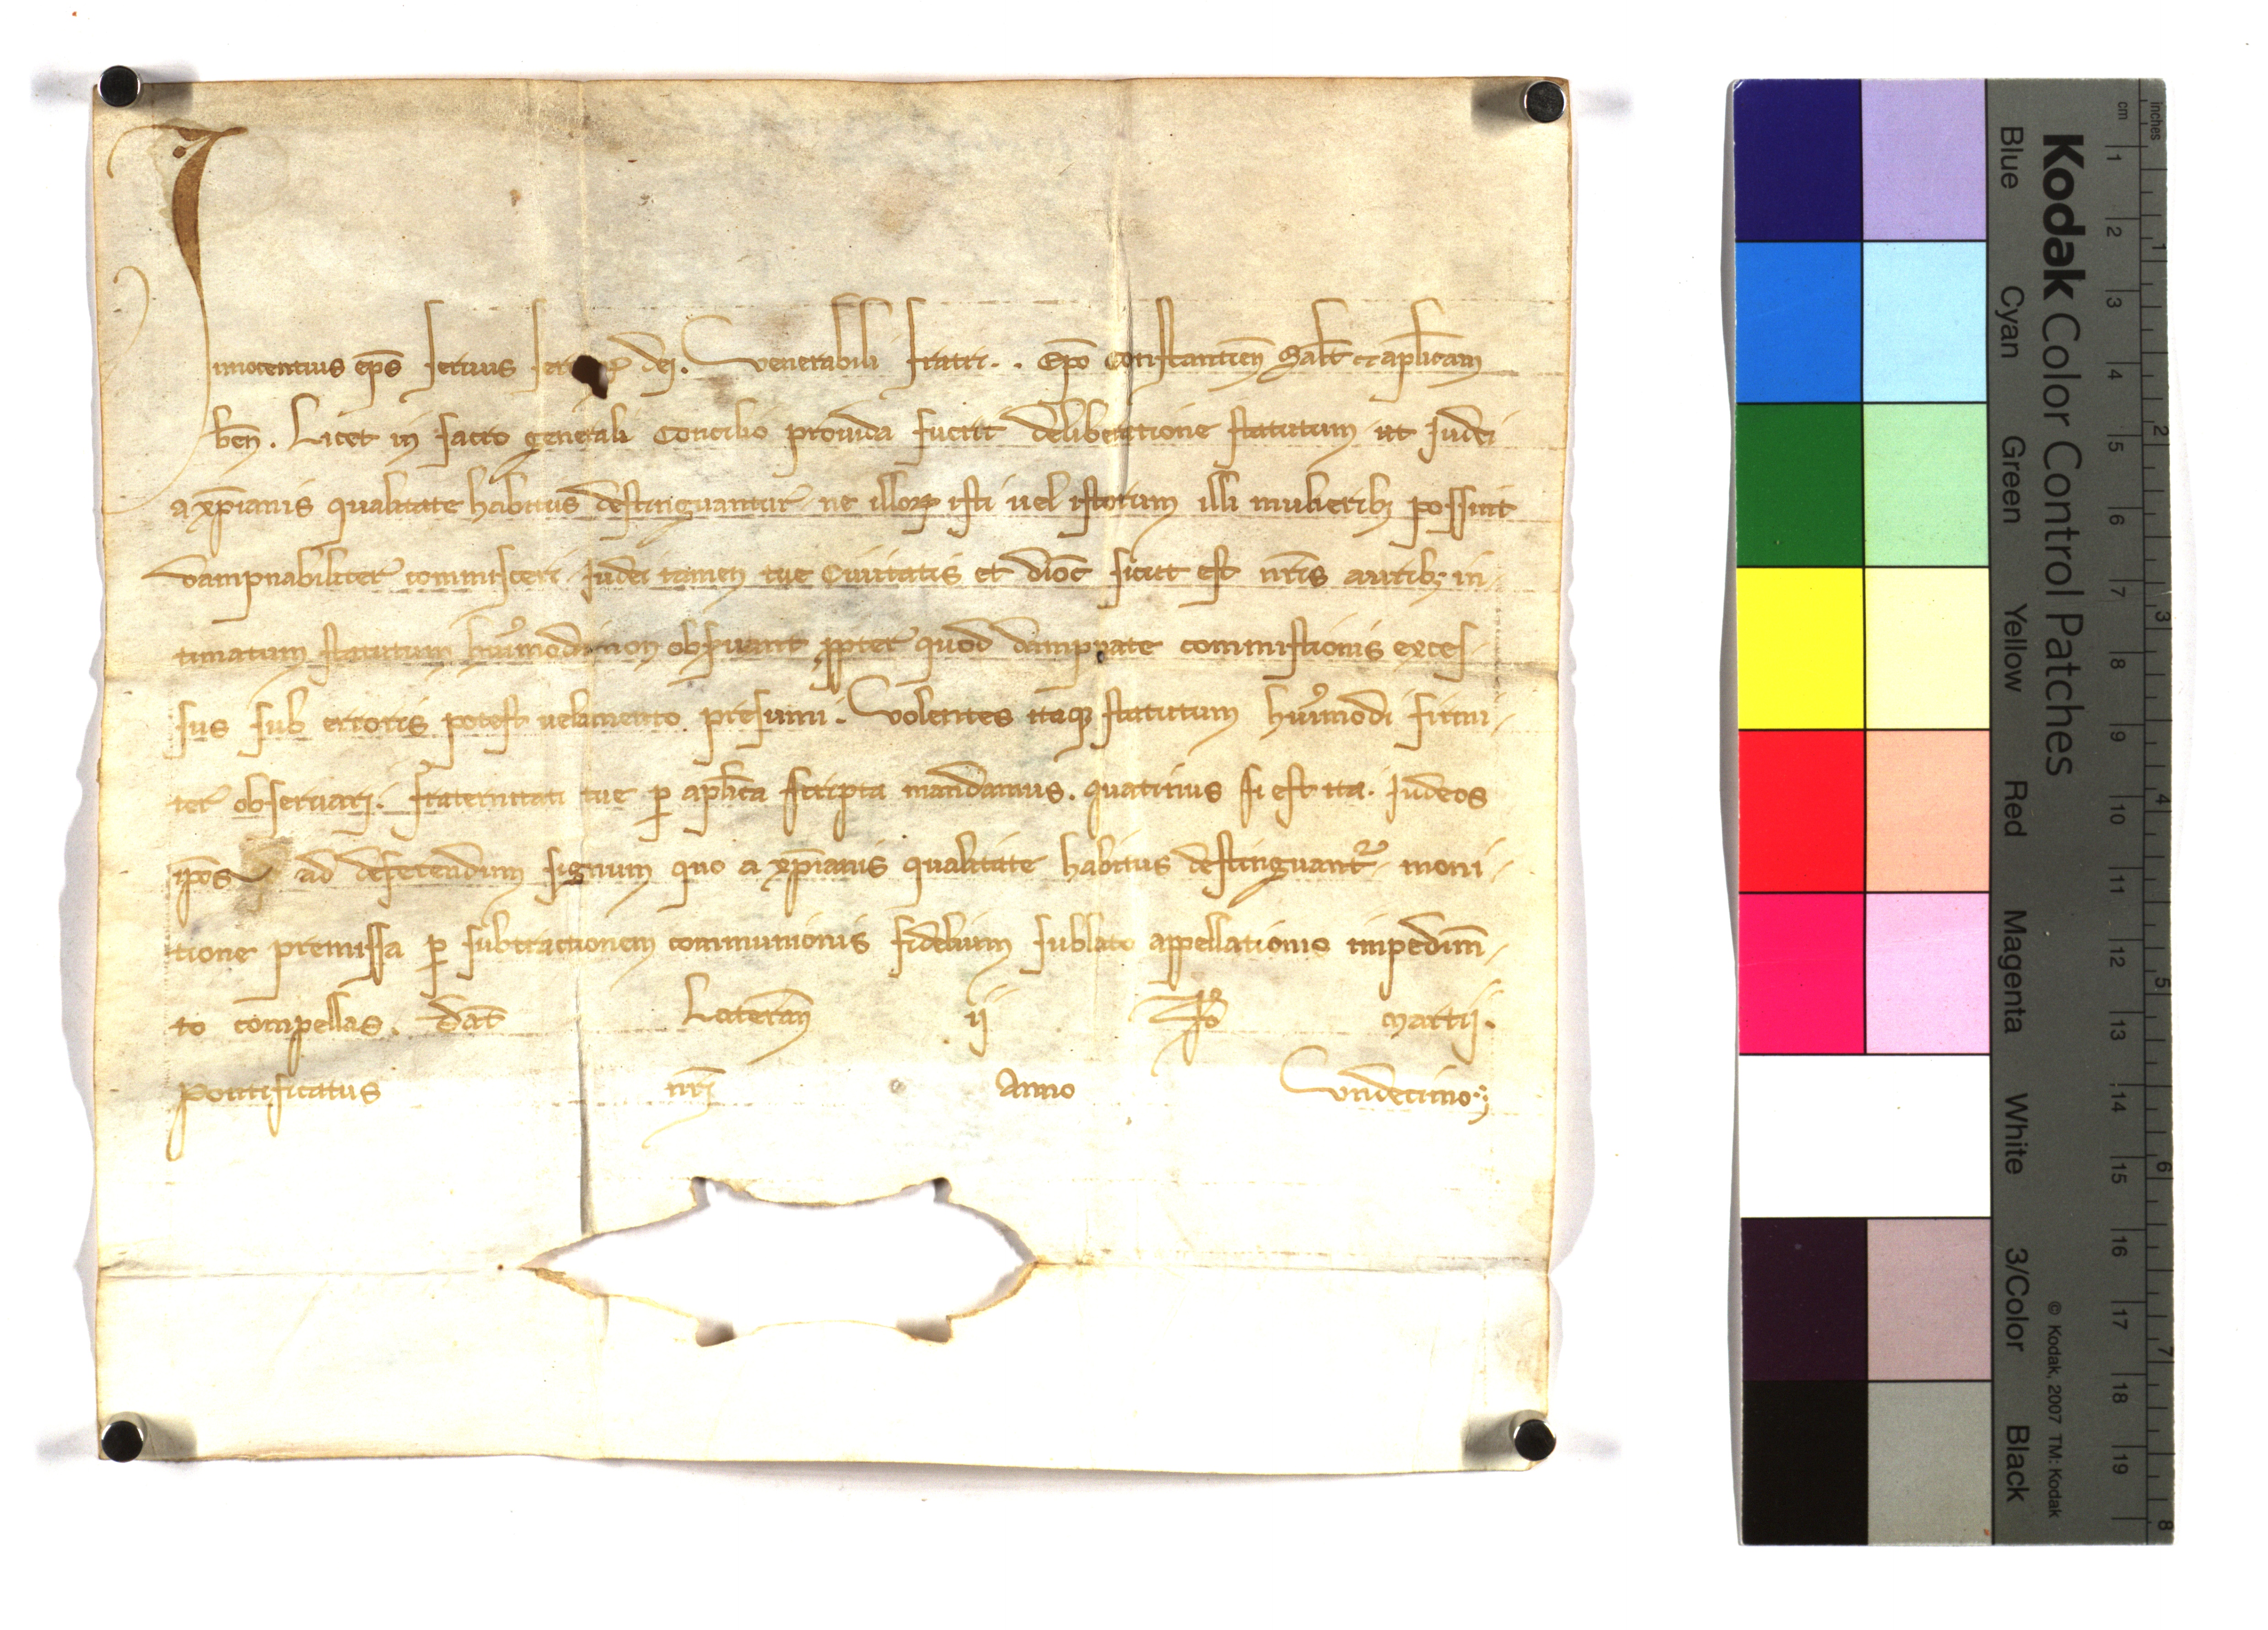 Innocentius ep̄s seruus ser dei. Venerabili fratri . . Ep̄o Constantien̄ Salt̄ et ap̄licam
ben̄. Licet in sacro generali Concilio prouida fuerit deliberatione statutum ut Iudei
a xp̄ianis qualitate habitus destinguantur ne illoꝝ isti uel istorum illi mulieribꝫ possint
dampnabiliter commisceri. Iudei tamen tue Ciuitatis et dioc̄ sicut est nr̄is auribꝫ in-
timatum statutum huiꝰmodi non obseruant ꝓpter quod dampnate commistionis exces-
sus sub erroris potest uelamento presumi. Volentes itaqꝫ statutum huiꝰmodi firmi-
ter obseruari. fraternitati tue ꝑ ap̄lica scripta mandamus. quatinus si est ita. Iudeos
ip̄os ad deferendum signum quo a xp̄ianis qualitate habitus destinguant᷑ moni-
tione premissa ꝑ subtractionem communionis fidelium sublato appellationis impedim̄-
to compellas. Dat̄ Lateran̄ ij No Martij.
Pontificatus nr̄i Anno Vndecimo.
Kodak Color Control Patches
Blue Cyan Green Yellow Red Magenta White 3/Color Black
© Kodak, 2007 TM: Kodak
cm 1 2 3 4 5 6 7 8 9 10 11 12 13 14 15 16 17 18 19
inches 1 2 3 4 5 6 7 8